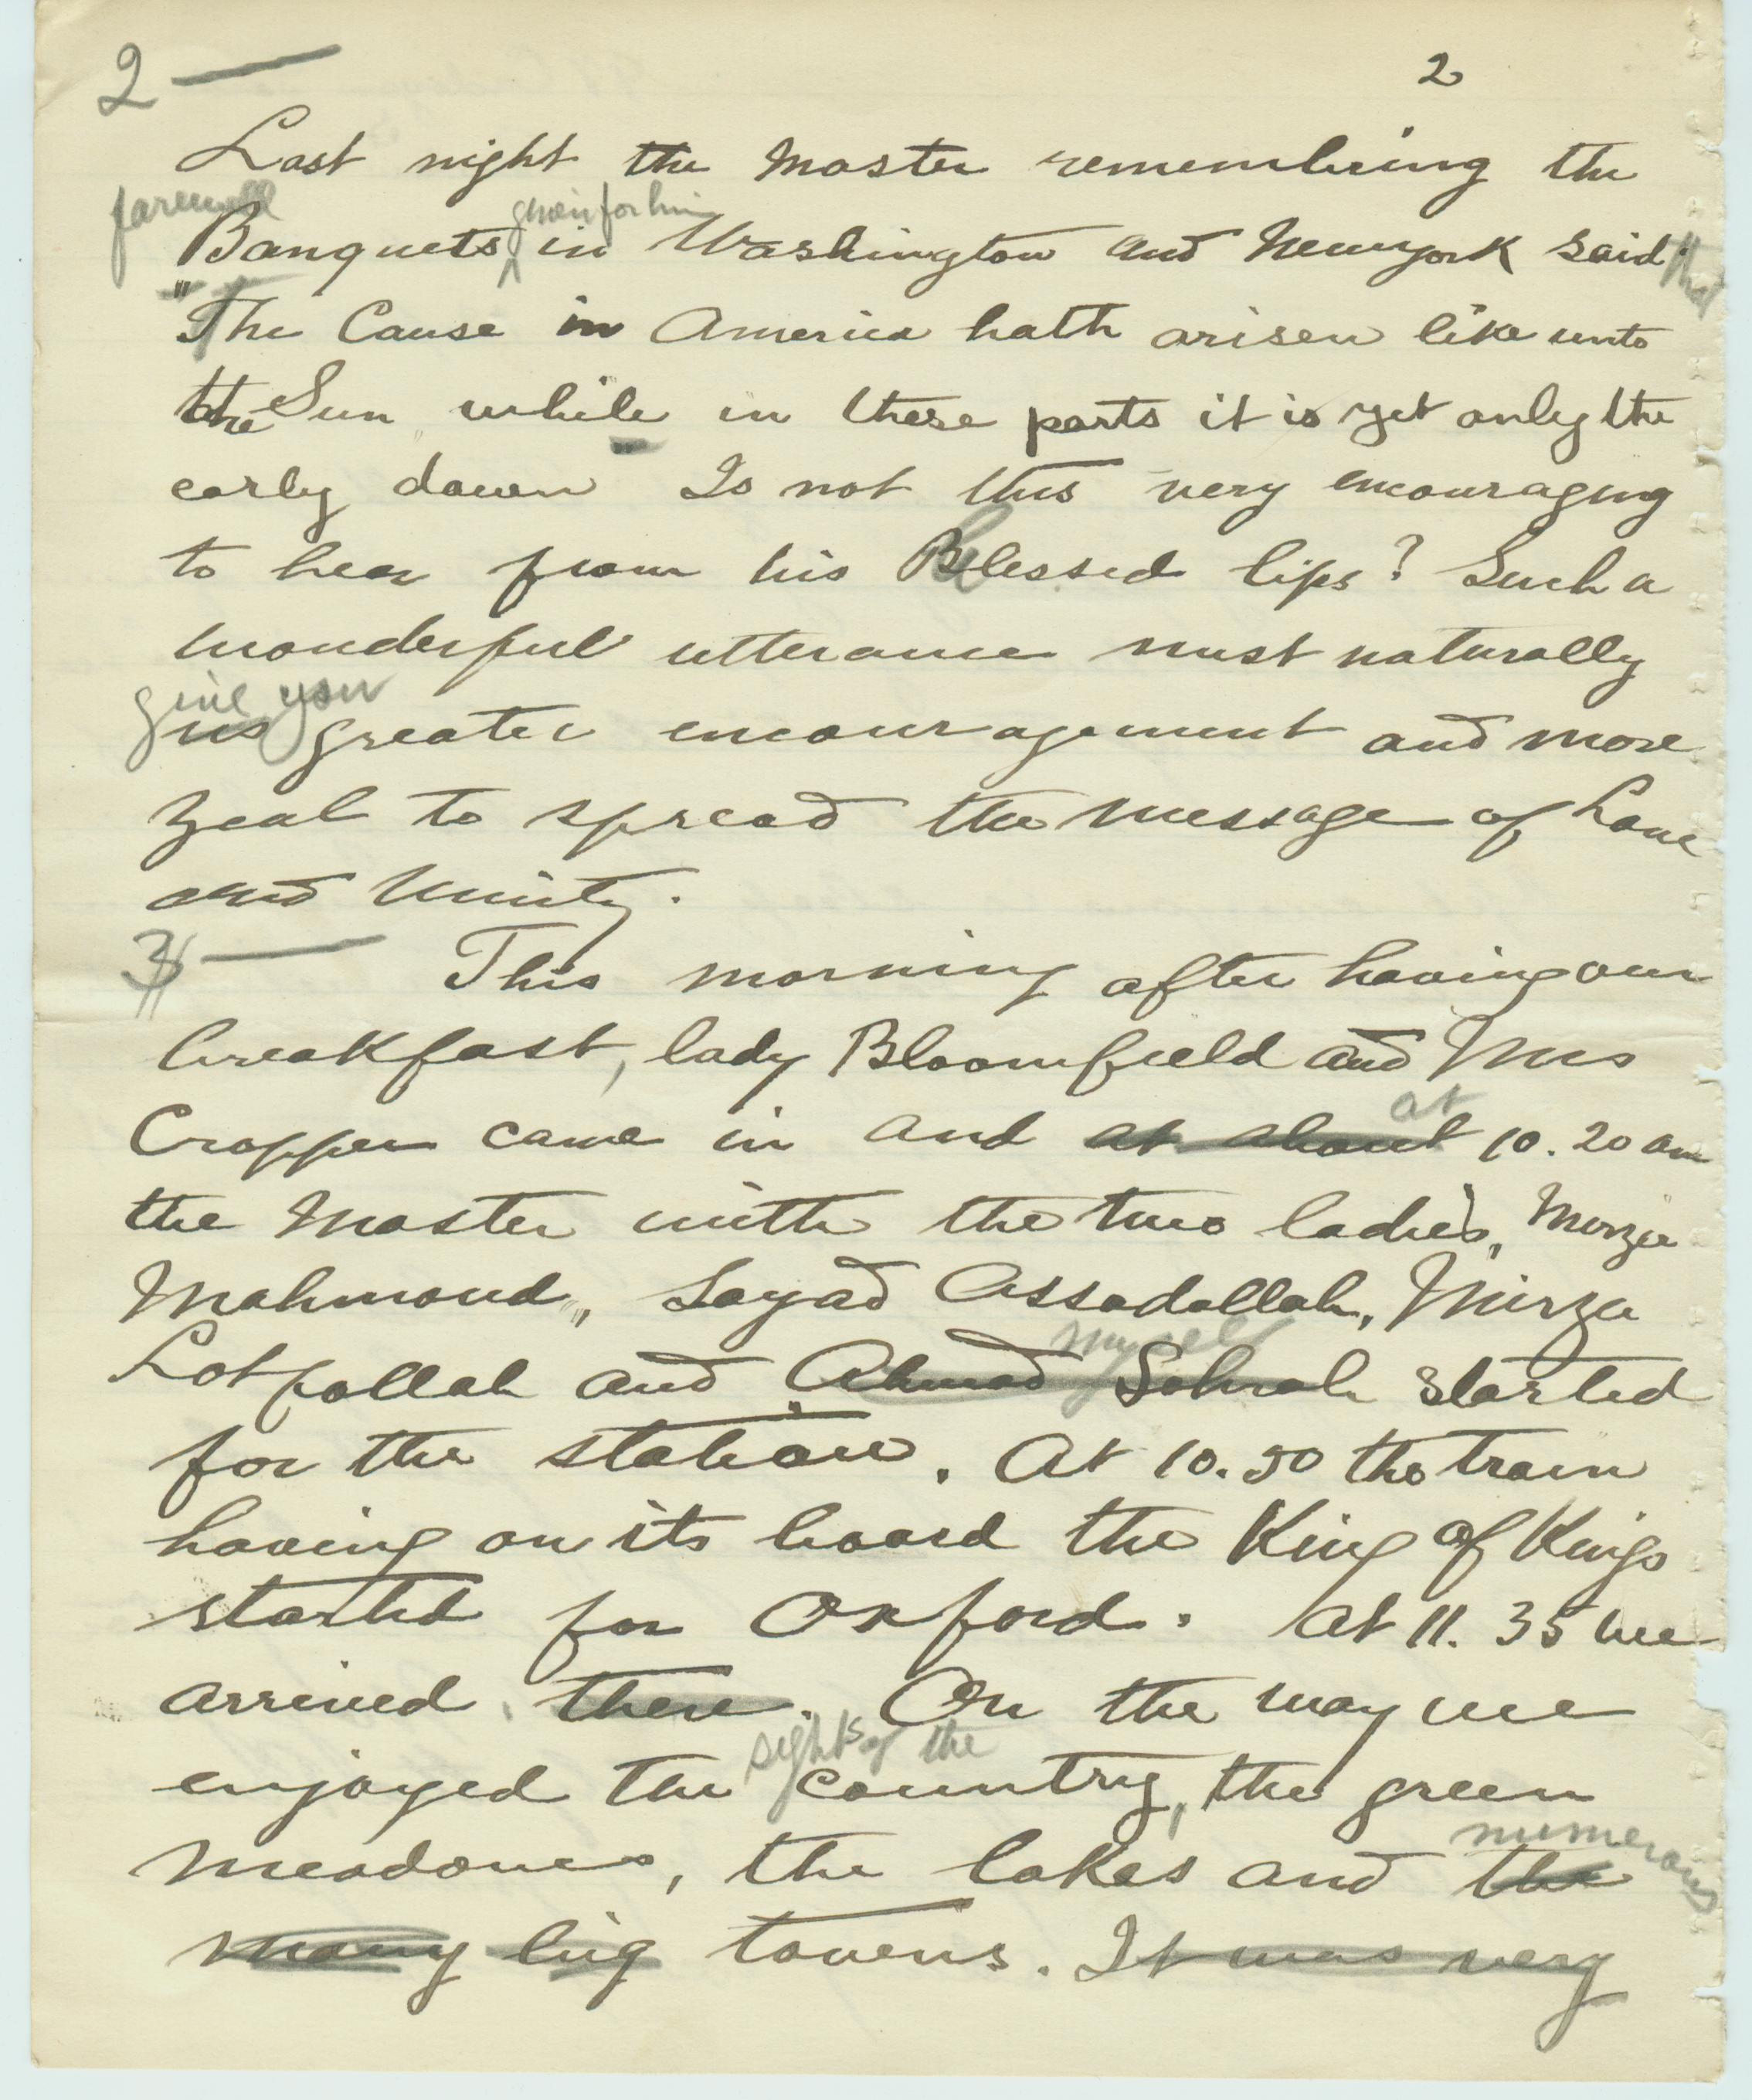 2—
2
Last night the Master remembering the
farewell
given for him
Banquets in Washington and New york said that
"The Cause in America hath arisen like unto
the Sun while in these parts it is yet only the
early dawn Is not this very encouraging
to hear from his Blessed lips? Such a
wonderful utterance must naturally
give you
us greater encouragement and more
zeal to spread the message of Love
and Unity.
3— This morning after having our
breakfast, lady Bloomfield and Mrs
at
Cropper came in and at about 10.20 am
the Master with the two ladies, Mirza
Mahmoud, Sayad Assadollah, Mirza
myself
Lotfollah and Ahmad Sohrab started
for the station. At 10.50 the train
having on its board the King of Kings
started for Oxford. At 11.35 we
arrived there. On the way we
sights of the
enjoyed the country, the green
numerous
meadows, the lakes and the
many big towens. It was very